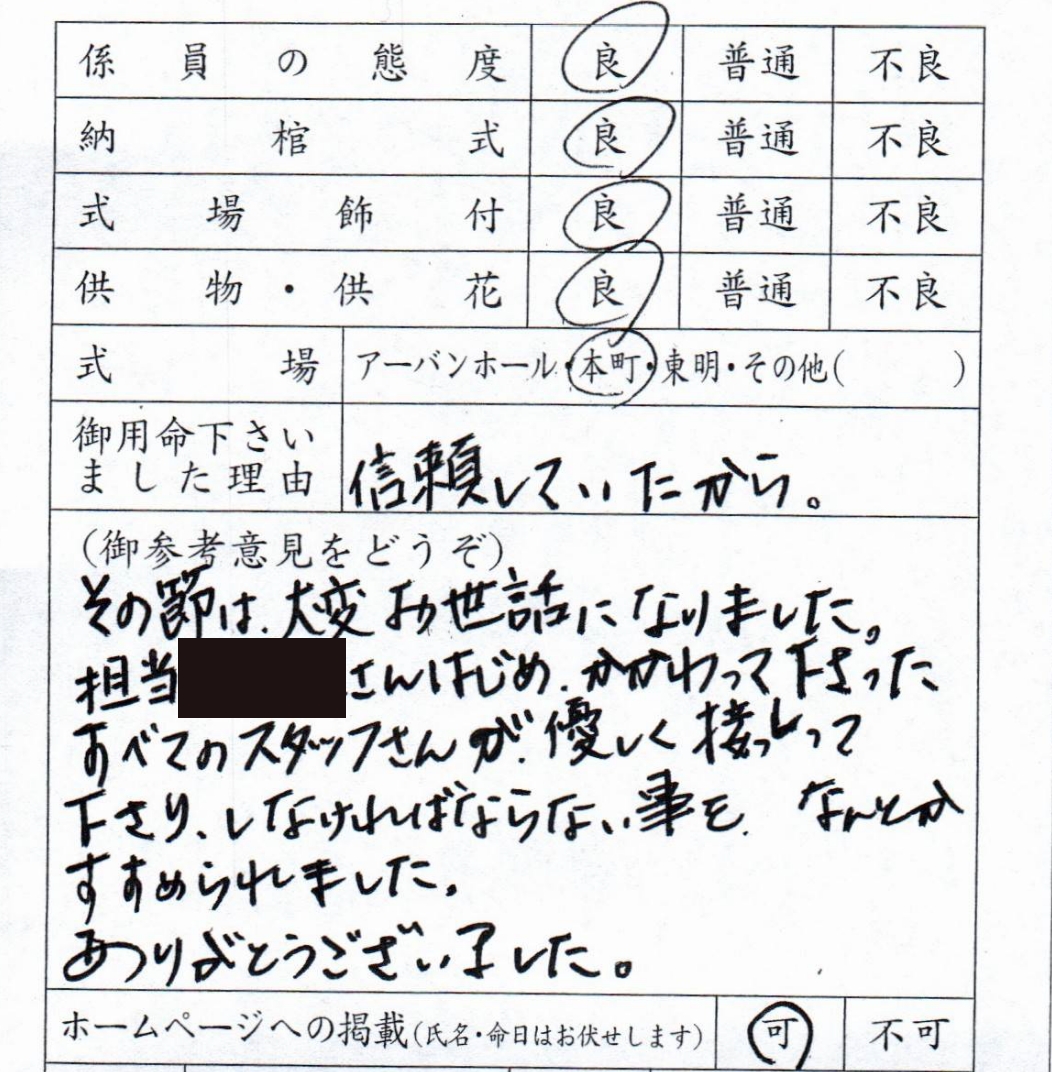 係員の態度 良 普通 不良
納棺式 良 普通 不良
式場飾付 良 普通 不良
供物・供花 良 普通 不良
式場 アーバンホール・本町・東明・その他( )
御用命下さい
ました理由
信頼していたから。
(御参考意見をどうぞ)
その節は、大変お世話になりました。
担当 さんはじめ、かかわって下さった
すべてのスタッフさんが、優しく接しって
下さり、しなければならない事を、なんとか
すすめられました。
ありがとうございました。
ホームページへの掲載(氏名・命日はお伏せします) 可 不可